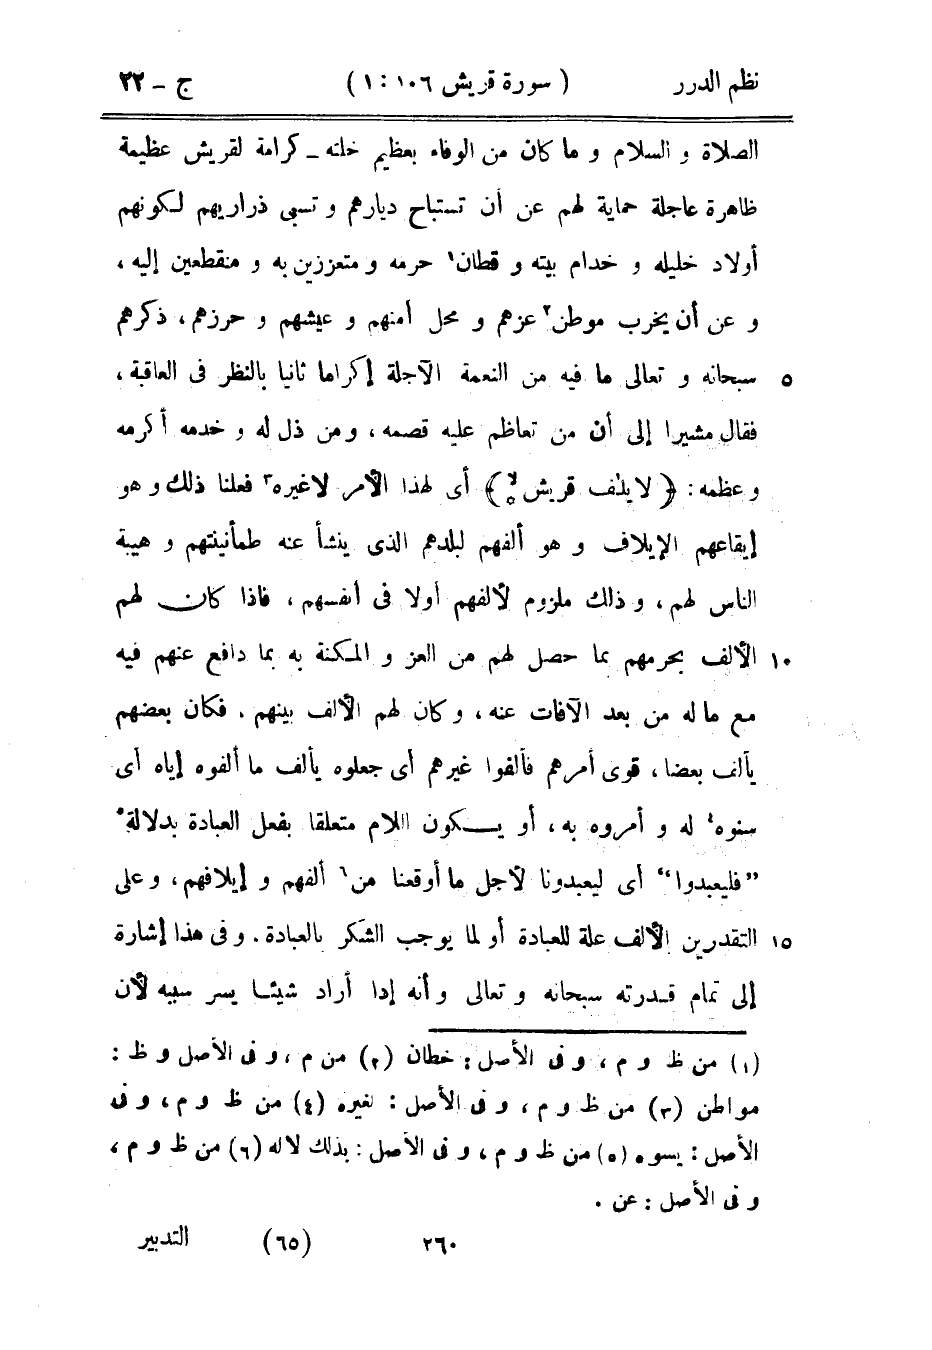 نظم الدرر ( سورة قريش ١٠٦ : ١ ) ج - ٢٢
الصلاة و السلام و ما كان من الوفاء بعظيم خلته - كرامة لقريش عظيمة
ظاهرة عاجلة حماية لهم عن أن تستباح ديارهم و تسبى ذراريهم لكونهم
أولاد خليله و خدام بيته و قطان١ حرمه و متعززين به و منقطعين إليه ،
و عن أن يخرب موطن٢ عزهم و محل أمنهم و عيشهم و حرزهم ، ذكرهم
٥ سبحانه و تعالى ما فيه من النعمة الآجلة إكراما ثانيا بالنظر فى العاقبة ،
فقال مشيرا إلى أن من تعاظم عليه قصمه ، و من ذل له و خدمه أكرمه
و عظمه : ﴿ لايلٰف قريش ۙ ﴾ أى لهذا الأمر لاغيره٣ فعلنا ذلك و هو
إيقاعهم الإيلاف و هو ألفهم لبلدهم الذى ينشأ عنه طمأنينتهم و هيبة
الناس لهم ، و ذلك ملزوم لألفهم أولا فى أنفسهم ، فاذا كان لهم
١٠ الألف بحرمهم بما حصل لهم من العز و المكنة به بما دافع عنهم فيه
مع ما له من بعد الآفات عنه ، و كان لهم الألف بينهم . فكان بعضهم
يألف بعضا ، قوى أمرهم فألفوا غيرهم أى جعلوه يألف ما ألفوه إياه أى
سنوه٤ له و أمروه به ، أو يكون اللام متعلقا بفعل العبادة بدلالة٥
”فليعبدوا“ أى ليعبدونا لأجل ما أوقعنا من٦ ألفهم و إيلافهم ، و على
١٥ التقدرين الألف علة للعبادة أو لما يوجب الشكر بالعبادة . و فى هذا إشارة
إلى تمام قدرته سبحانه و تعالى و أنه إدا أراد شيئا يسر سببه لأن
(١) من ظ و م ، و فى الأصل : خطان (٢) من م ، و فى الأصل و ظ :
مواطن (٣) من ظ و م ، و فى الأصل : لغيره (٤) من ظ و م ، و فى
الأصل : يسوه (٥) من ظ و م ، و فى الأصل : بذلك لاله (٦) من ظ و م ،
و فى الأصل : عن .
٢٦٠ (٦٥) التدبير